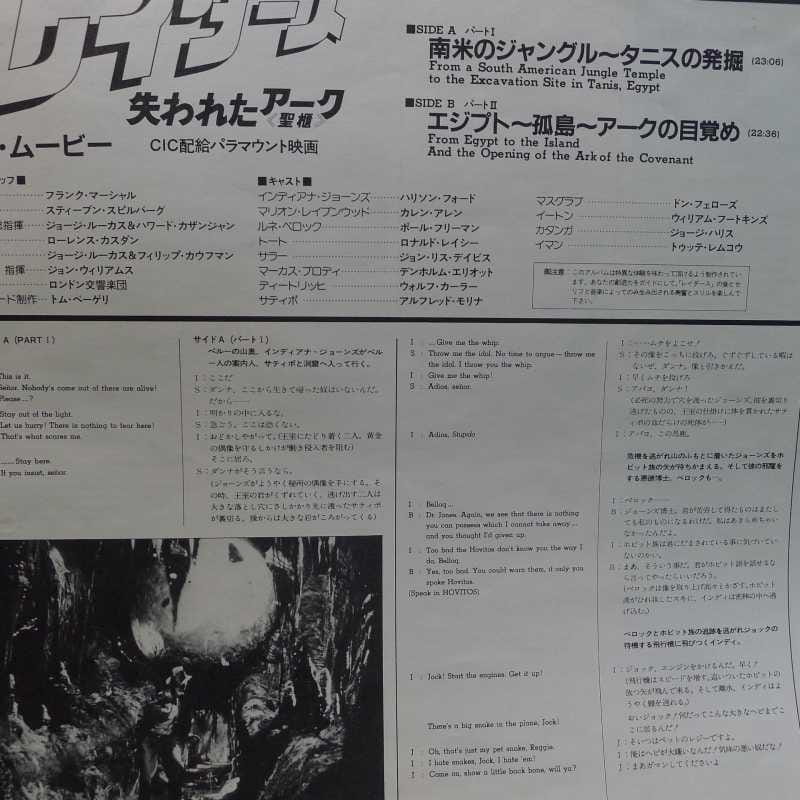 レイダース
失われたアーク
《聖櫃》
・ムービー
CIC配給パラマウント映画
■SIDE A パートI
南米のジャングル〜タニスの発掘 (23:06)
From a South American Jungle Temple
to the Excavation Site in Tanis, Egypt
■SIDE B パートII
エジプト〜孤島〜アークの目覚め (22:36)
From Egypt to the Island
And the Opening of the Ark of the Covenant
ッフ■
フランク・マーシャル
スティーブン・スピルバーグ
指揮 ジョージ・ルーカス&ハワード・カザンジャン
ローレンス・カスダン
ジョージ・ルーカス&フィリップ・カウフマン
指揮 ジョン・ウィリアムス
ロンドン交響楽団
ード制作 トム・ベーゲリ
■キャスト■
インディアナ・ジョーンズ ハリソン・フォード
マリオン・レイブンウッド カレン・アレン
ルネ・ベロック ポール・フリーマン
トート ロナルド・レイシー
サラー ジョン・リス・デイビス
マーカス・ブロディ デンホルム・エリオット
ディートリッヒ ウォルフ・カーラー
サティポ アルフレッド・モリナ
マスグラブ ドン・フェローズ
イートン ウィリアム・フートキンズ
カタンガ ジョージ・ハリス
イマン トゥッテ・レムコウ
御注意: このアルバムは特異な体験を味わって頂けるよう制作されてい
ます。あなたの創造力をガイドにして、「レイダース」の音とセ
リフと音楽によってのみ生み出される興奮とスリルを楽しんで
下さい。
A (PART I)
This is it.
Señor. Nobody's come out of there are alive!
Please...?
Stay out of the light.
Let us hurry! There is nothing to fear here!
That's what scares me.
......Stay here.
If you insist, señor.
サイドA(パートI)
ペルーの山奥、インディアナ・ジョーンズがペル
ー人の案内人、サティポと洞窟へ入って行く。
I：ここだ
S：ダンナ、ここから生きて帰った奴はいないんだ。
だから——
I：明かりの中に入るな。
S：急ごう。ここは恐くない。
I：おどかしやがって。(王室にたどり着く二人。黄金
の偶像を守るしかけが働き侵入者を阻む)
そこに居ろ。
S：ダンナがそう言うなら。
(ジョーンズがようやく秘所の偶像を手にする。そ
の時、王室の岩がくずれていく。逃げ出す二人は
大きな落とし穴にさしかかり先に渡ったサティポ
が裏切る。後からは大きな岩がころがってくる)
I : ...Give me the whip.
S : Throw me the idol. No time to argue—throw me
the idol. I throw you the whip.
I : Give me the whip!
S : Adios, señor.
I : Adios, Stupido
I : Belloq...
B : Dr. Jones. Again, we see that there is nothing
you can possess which I cannot take away...
and you thought I'd given up.
I : Too bad the Hovitos don't know you the way I
do, Belloq.
B : Yes, too bad. You could warn them, it only you
spoke Hovitus.
(Speak in HOVITOS)
I : Jock! Start the engines. Get it up!
There's a big snake in the plane, Jock!
J : Oh, that's just my pet snake, Reggie.
I : I hate snakes, Jock, I hate 'em!
J : Come on, show a little back bone, will ya?
I：……ムチをよこせ!
S：その像をこっちに投げろ。ぐずぐずしている暇は
ないぜ、ダンナ。像と引きかえだ。
I：早くムチを投げろ
S：アバヨ、ダンナ!
(必死の努力で穴を渡ったジョーンズ。彼を裏切り
逃げたものの、王室の仕掛けに体を貫かれたサテ
ィポの血だらけの死体が—)
I：アバヨ、この馬鹿。
危機を逃がれ山のふもとに着いたジョーンズをホ
ビット族の矢が待ちかまえる。そして彼の邪魔を
する悪徳博士、ベロックも…。
I：ベロック……
B：ジョーンズ博士。君が苦労して得たものはまたし
ても私のものになるわけだ。私はあきらめちゃい
なかったんだよ。
I：ホビット族は君にだまされている事に気づいてい
ないのかい。
B：まあ、そういう事だ。君がホビット語を話せるな
ら言ってやったらいいだろう。
(ベロックは像を取り上げ高々とかざす。ホビット
族がひれ伏したスキに、インディは密林の中へ逃
げ込む。)
ベロックとホビット族の追跡を逃がれジョックの
待機する飛行機に飛びつくインディ。
I：ジョック、エンジンをかけるんだ。早く!
(飛行機はスピードを増す。追いついたホビットの
放つ矢が飛んで来る。そして離水、インディはよ
うやく難を逃れる。)
おいジョック!何だってこんな大きなヘビまでこ
こに居るんだ!
J：そいつはペットのレジーですよ。
I：俺はヘビが大嫌いなんだ!気味の悪い奴だな!
J：まあガマンしてくださいよ